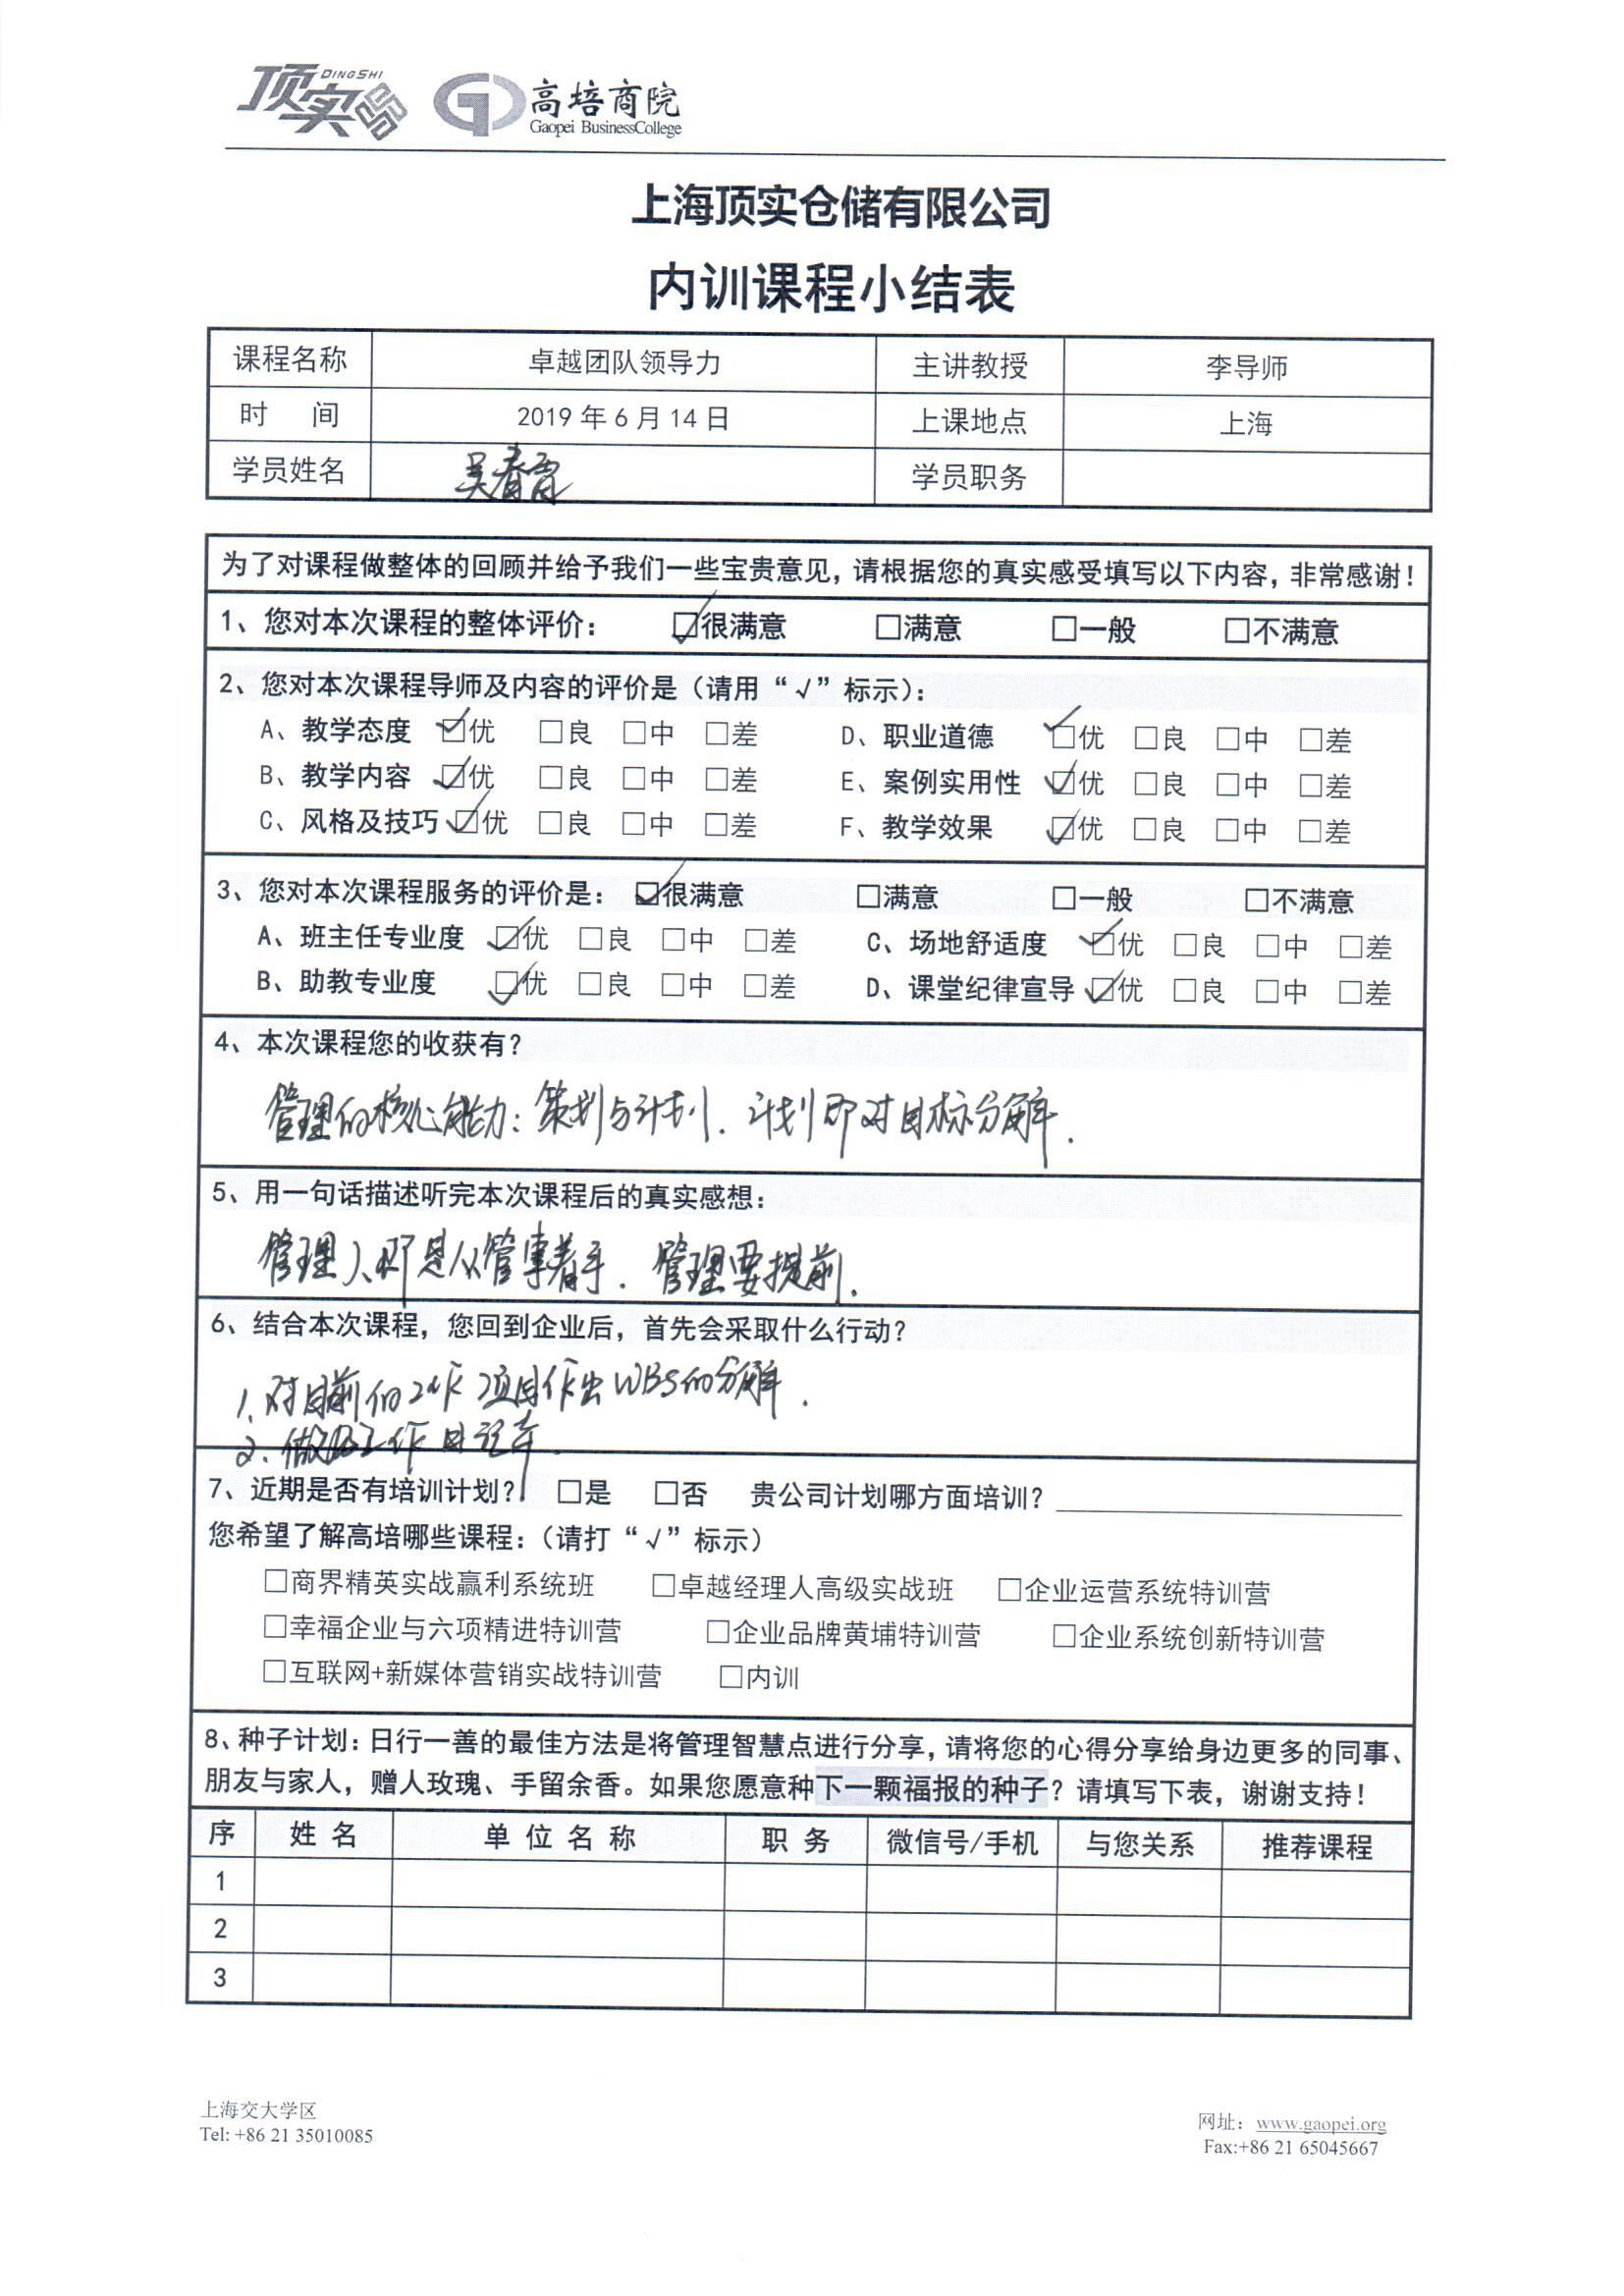 顶实 DINGSHI
高培商院
Gaopei BusinessCollege
上海顶实仓储有限公司
内训课程小结表
课程名称 卓越团队领导力 主讲教授 李导师
时 间 2019 年 6 月 14 日 上课地点 上海
学员姓名 吴春 学员职务
为了对课程做整体的回顾并给予我们一些宝贵意见，请根据您的真实感受填写以下内容，非常感谢！
1、您对本次课程的整体评价： ☑很满意 □满意 □一般 □不满意
2、您对本次课程导师及内容的评价是（请用“√”标示）：
A、教学态度 ☑优 □良 □中 □差 D、职业道德 ☑优 □良 □中 □差
B、教学内容 ☑优 □良 □中 □差 E、案例实用性 ☑优 □良 □中 □差
C、风格及技巧 ☑优 □良 □中 □差 F、教学效果 ☑优 □良 □中 □差
3、您对本次课程服务的评价是： ☑很满意 □满意 □一般 □不满意
A、班主任专业度 ☑优 □良 □中 □差 C、场地舒适度 ☑优 □良 □中 □差
B、助教专业度 ☑优 □良 □中 □差 D、课堂纪律宣导 ☑优 □良 □中 □差
4、本次课程您的收获有？
管理的核心能力：策划与计划．计划即对目标分解．
5、用一句话描述听完本次课程后的真实感想：
管理人，即是从管事着手．管理要提前．
6、结合本次课程，您回到企业后，首先会采取什么行动？
1、对目前的工作项目作出WBS的分解．
2、做好工作日记本．
7、近期是否有培训计划？ □是 □否 贵公司计划哪方面培训？
您希望了解高培哪些课程：（请打“√”标示）
□商界精英实战赢利系统班 □卓越经理人高级实战班 □企业运营系统特训营
□幸福企业与六项精进特训营 □企业品牌黄埔特训营 □企业系统创新特训营
□互联网+新媒体营销实战特训营 □内训
8、种子计划：日行一善的最佳方法是将管理智慧点进行分享，请将您的心得分享给身边更多的同事、
朋友与家人，赠人玫瑰、手留余香。如果您愿意种下一颗福报的种子？请填写下表，谢谢支持！
序 姓 名 单 位 名 称 职 务 微信号/手机 与您关系 推荐课程
1
2
3
上海交大学区 网址：www.gaopei.org
Tel: +86 21 35010085 Fax:+86 21 65045667